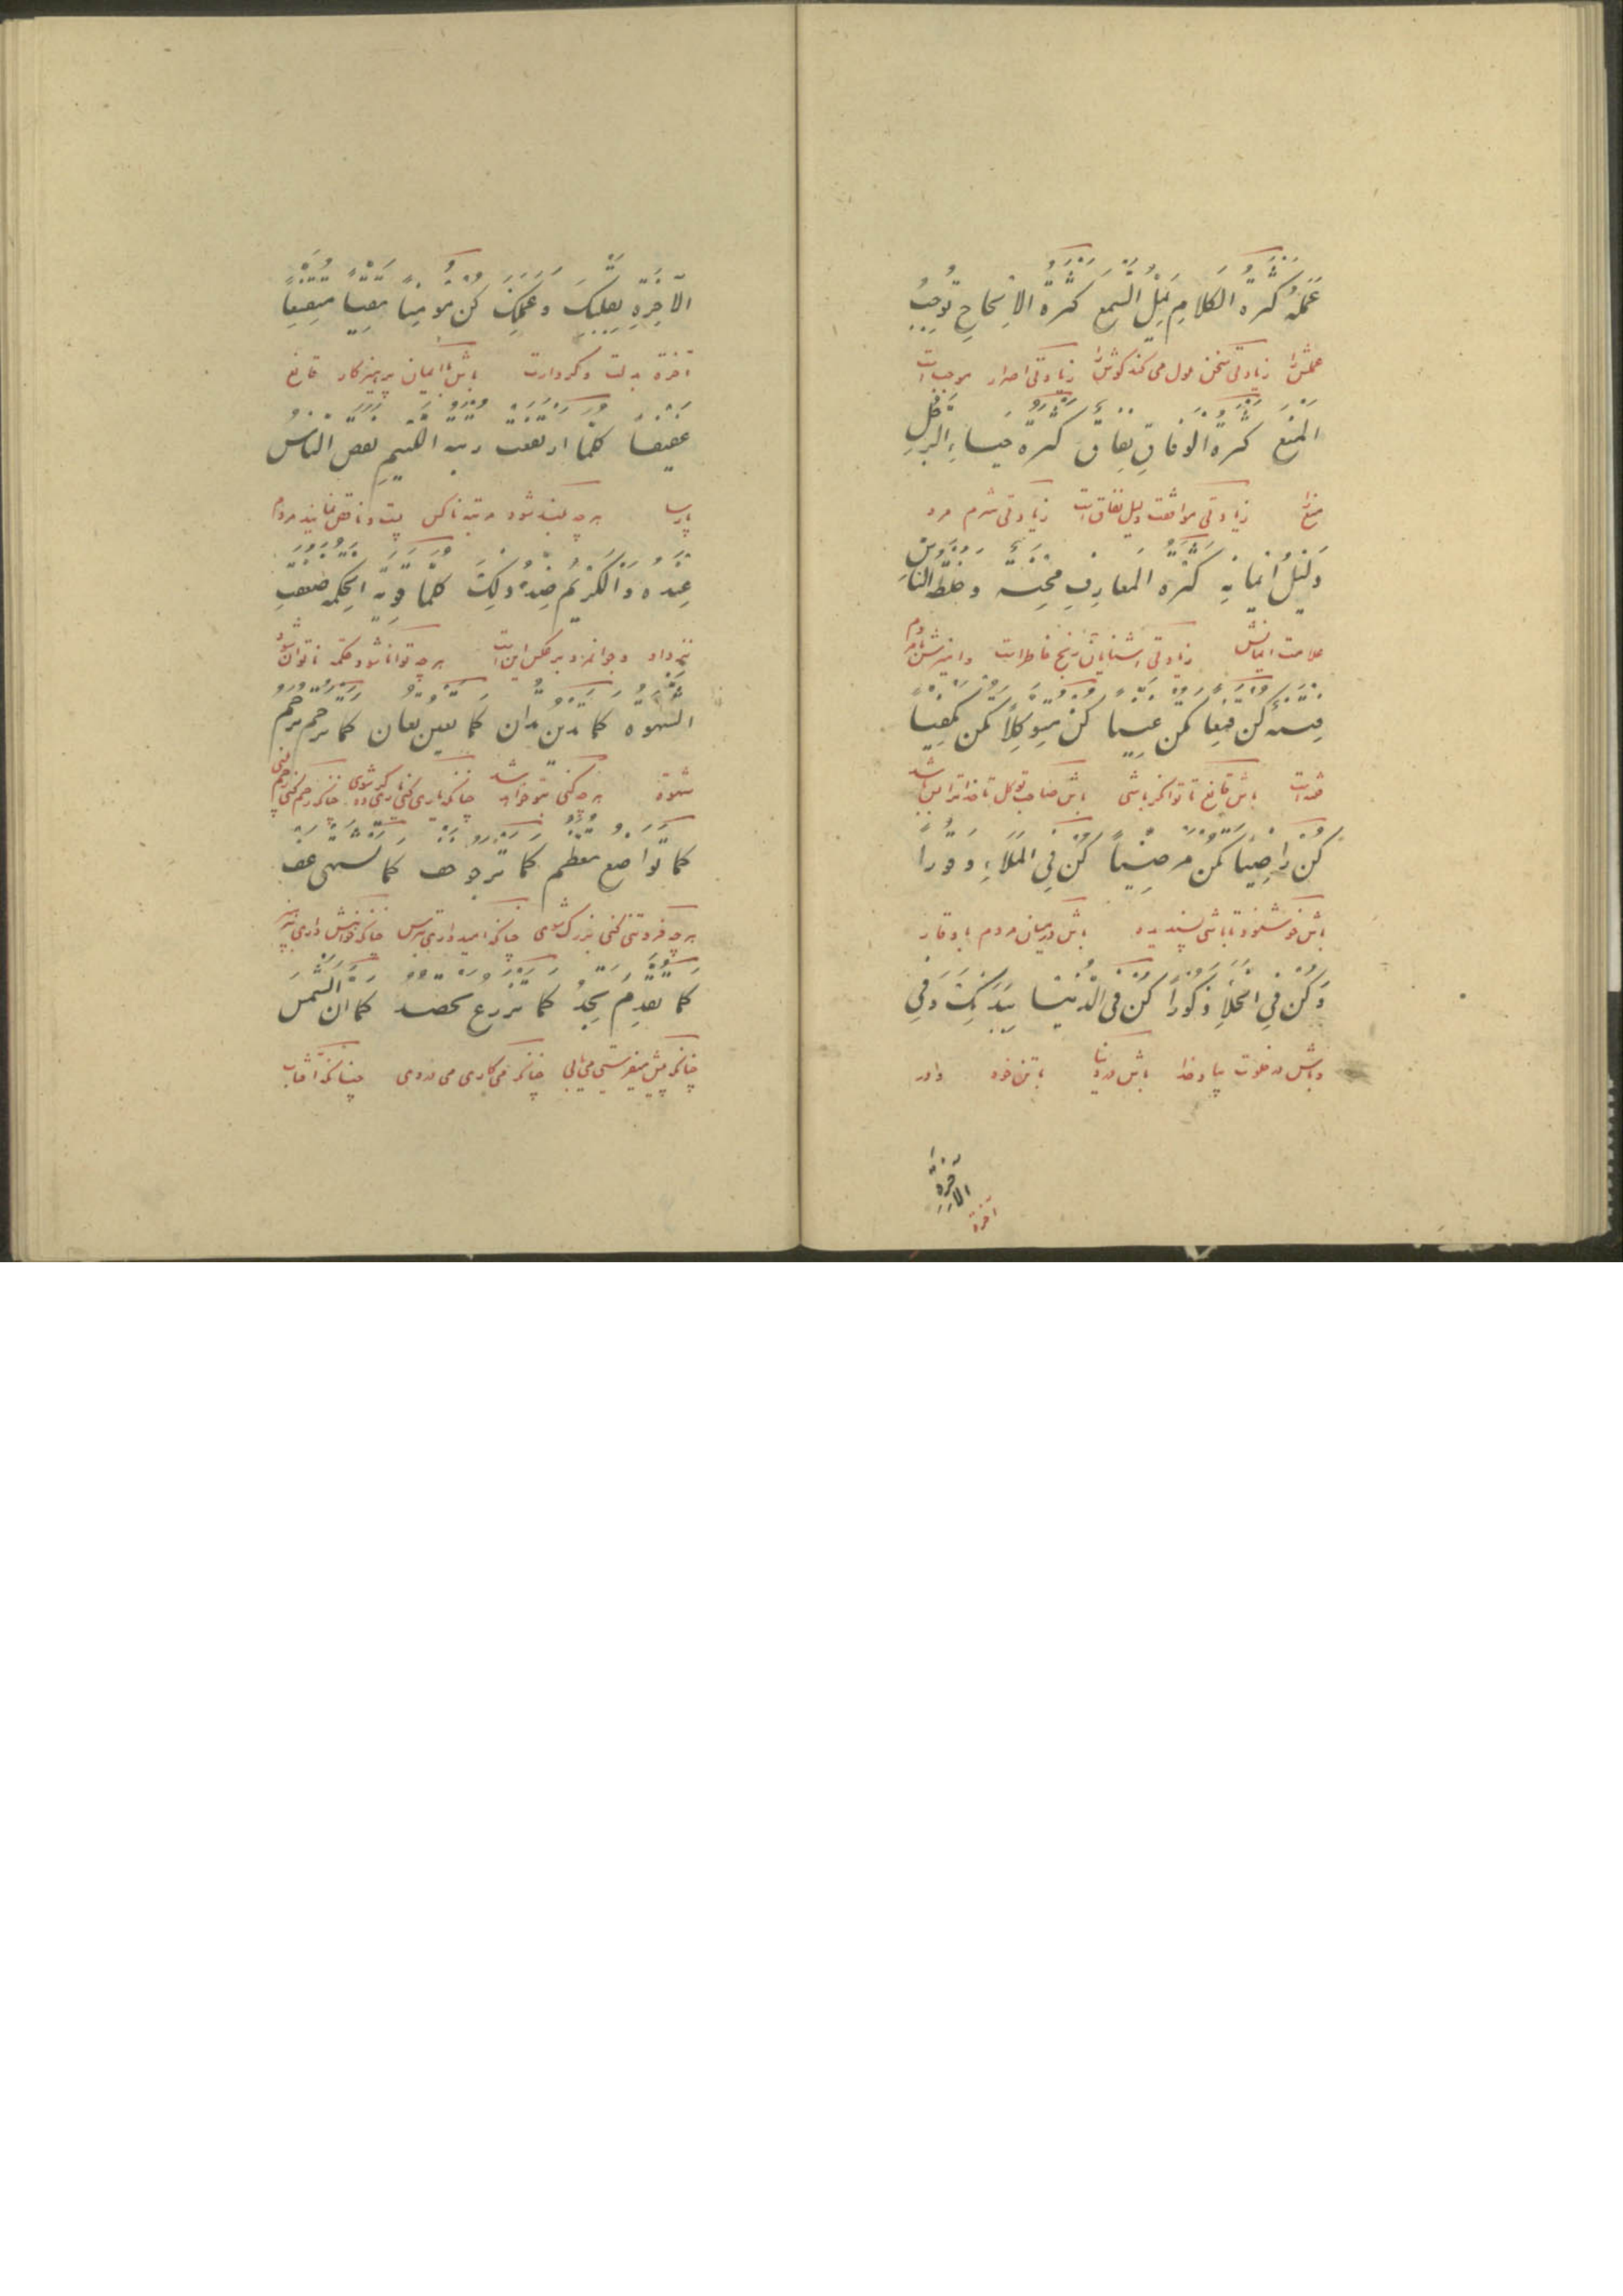 عَمَلَهُ كَثْرَةُ الكَلَامِ يُمِلُّ السَّمْعَ كَثْرَةُ الاِلْحَاحِ تُوجِبُ
عملش را زیادتی سخن ملول می کند گوش را زیادتی اصرار موجب است
المَنْعَ كَثْرَةُ الوِفَاقِ نِفَاقٌ كَثْرَةُ حَيَاءِ الرَّجُلِ
منع را زیادتی موافقت دلیل نفاق است زیادتی شرم مرد
دَلِيلُ اِيمَانِهِ كَثْرَةُ المَعَارِفِ مِحْنَةٌ وَخُلْطَةُ النَّاسِ
علامت ایمانش زیادتی آشنایان رنج خاطر است و آمیزش با مردم
فِتْنَةٌ كُنْ قَنِعًا تَكُنْ غَنِيًّا كُنْ مُتَوَكِّلًا تَكُنْ مَكْفِيًّا
فتنه است باش قانع تا توانگر باشی باش صاحب توکل تا خدا ترا بس باشد
كُنْ رَاضِيًا تَكُنْ مَرْضِيًّا كُنْ فِي المَلَاءِ وَقُورًا
باش خوشنود تا باشی پسندیده باش در میان مردم با وقار
وَكُنْ فِي الخَلَاءِ ذَكُورًا كُنْ فِي الدُّنْيَا بِبَدَنِكَ وَفِي
و باش در خلوت بیاد خدا باش در دنیا با تن خود و در
الآخِرَةِ
آخرة
الآخِرَةِ بِقَلْبِكَ وَعَمَلِكَ كُنْ مُؤْمِنًا تَقِيًّا مُتَقَنِّعًا
آخرة بدلت و کردارت باش با ایمان پرهیزکار قانع
عَفِيفًا كُلَّمَا ارْتَفَعَتْ رُتْبَةُ اللَّئِيمِ نَقَصَ النَّاسُ
پارسا هر چه بلند شود مرتبه ناکس پست و ناقص نمایند مردم
عِنْدَهُ وَالكَرِيمُ ضِدُّ ذٰلِكَ كُلَّمَا قَوِيَتِ الحِكْمَةُ ضَعُفَتِ
نزد او و جوانمرد بر عکس این است هر چه توانا شود حکمة ناتوان شود
الشَّهْوَةُ كَمَا تَدِينُ تُدَانُ كَمَا تُعِينُ تُعَانُ كَمَا تَرْحَمُ تُرْحَمُ
شهوة هر چه کنی بتو خواهد شد چنانکه یاری کنی یاری کرده شوی چنانکه رحم کنی رحم
كَمَا تَوَاضَعُ تُعَظَّمُ كَمَا تَرْجُو خَفْ كَمَا تَشْتَهِي عِفَّ
هر چه فروتنی کنی بزرگ شوی چنانکه امید داری بترس چنانکه خواهش داری
كَمَا تُقَدِّمُ تَجِدُ كَمَا تَزْرَعُ تَحْصُدُ كَمَا اَنَّ الشَّمْسَ
چنانکه پیش میفرستی می یابی چنانکه می کاری می دروی چنانکه آفتاب